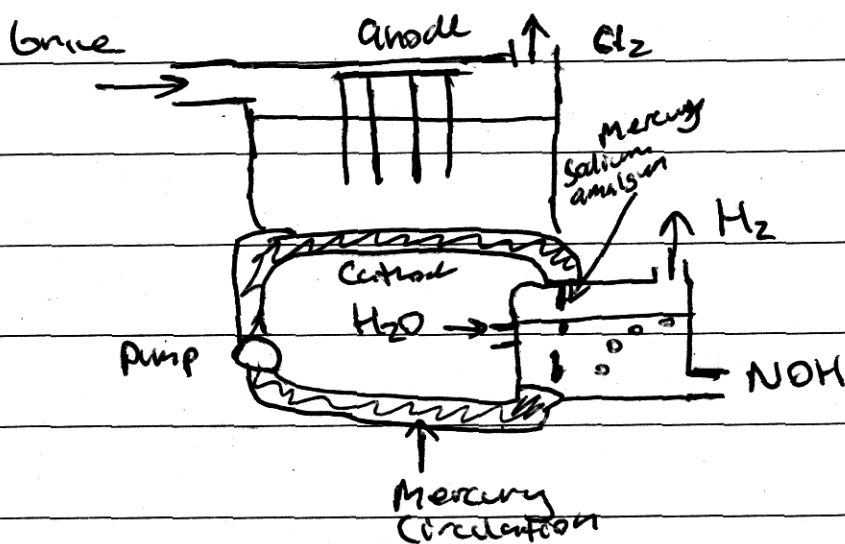 brine
anode
Cl2
Mercury
Sodium
amalgum
H2
Cathod
H2O
Pump
NOH
Mercury
Circulation